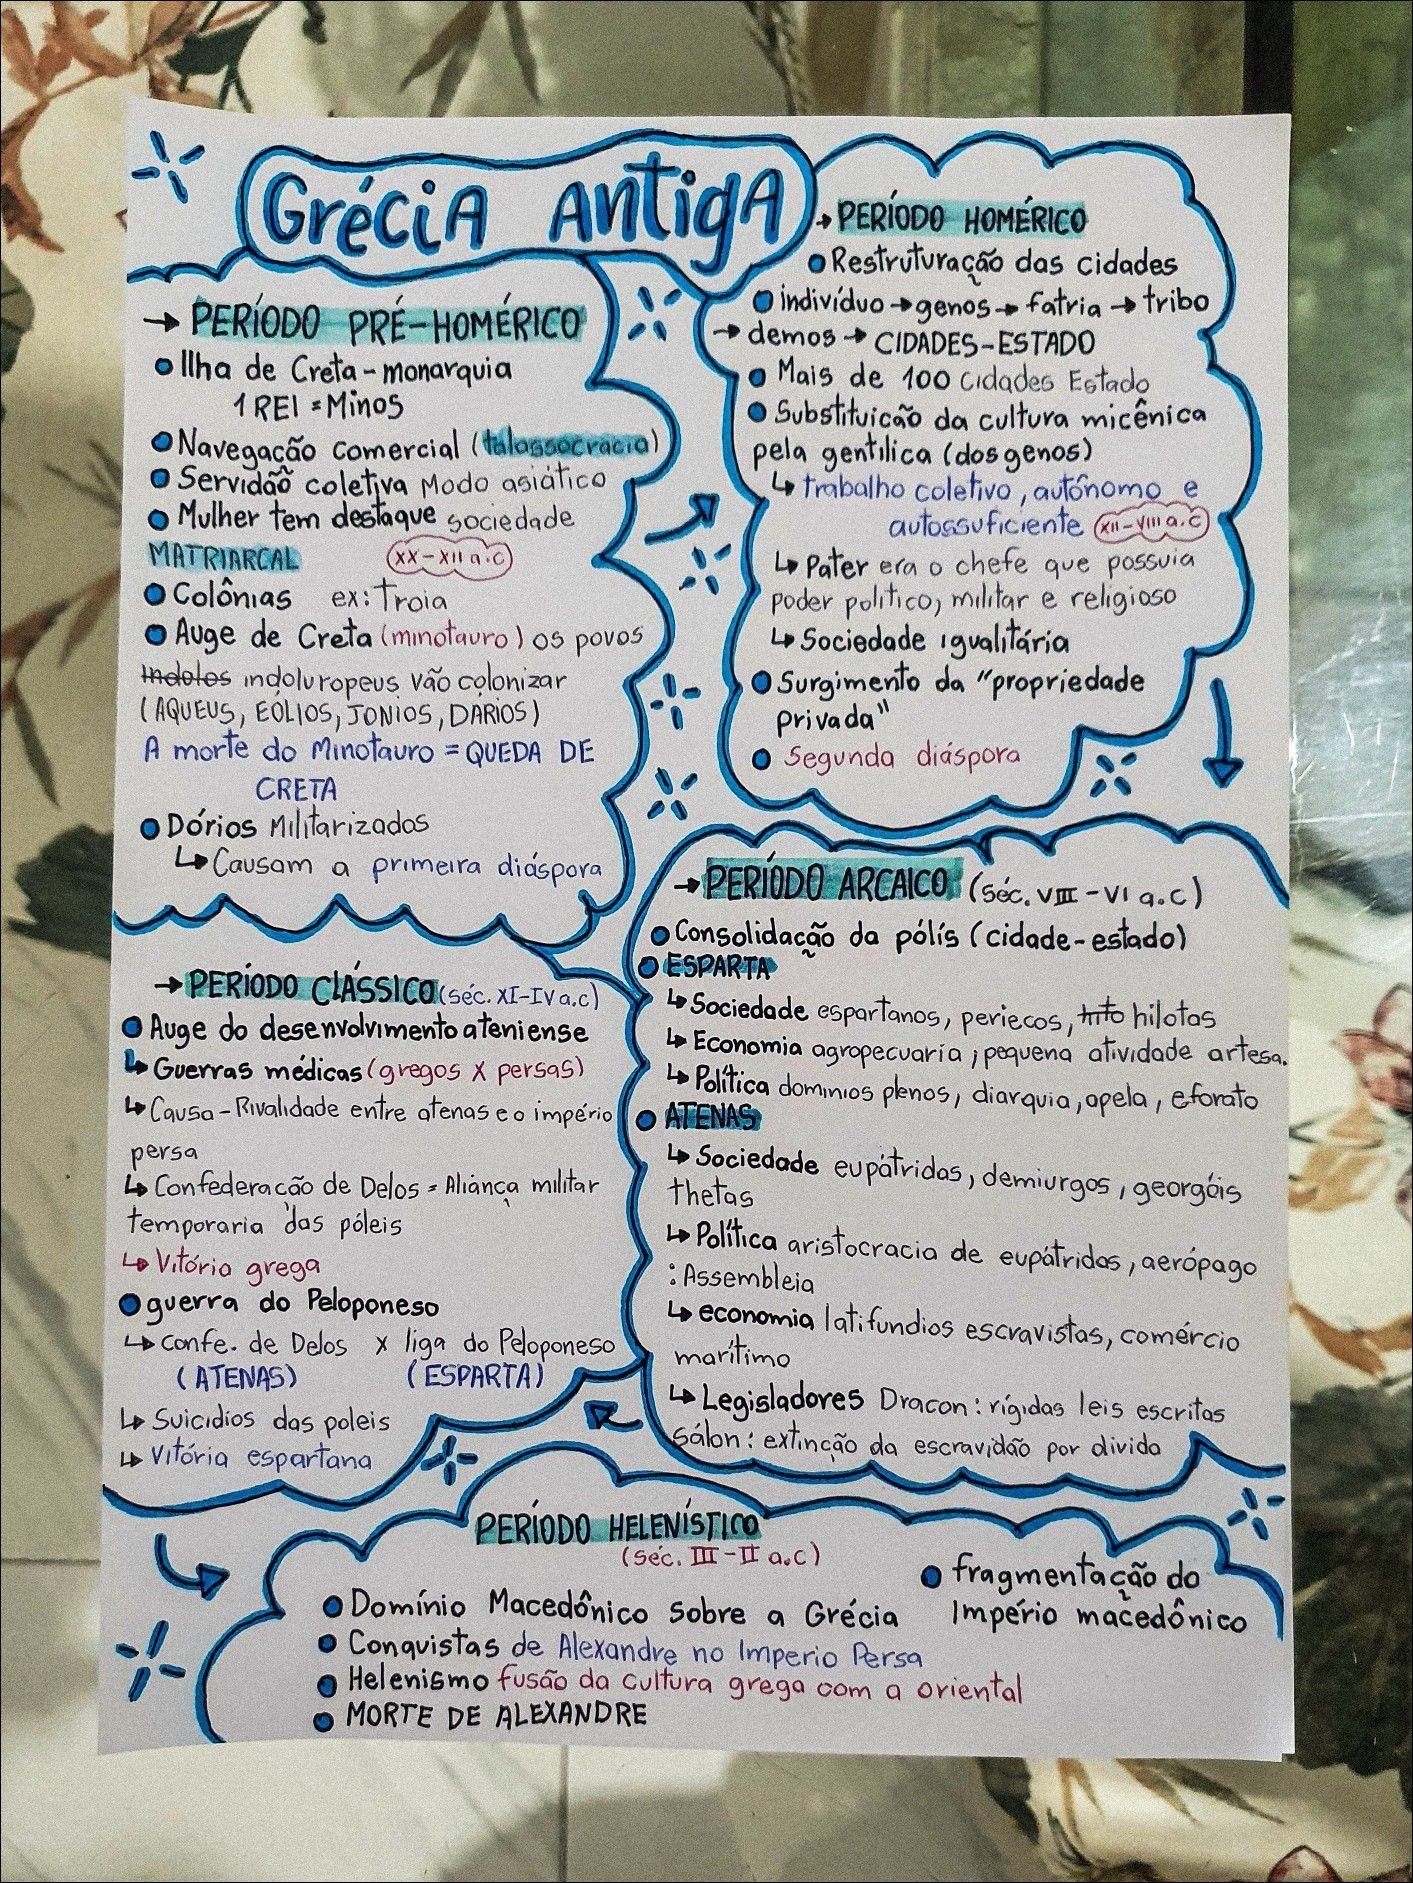 GréciA AntigA
→ PERÍODO PRÉ-HOMÉRICO
Ilha de Creta - monarquia
1 REI = Minos
Navegação comercial (talassocracia)
Servidão coletiva Modo asiático
Mulher tem destaque sociedade
MATRIARCAL XX-XII a.C
Colônias ex: Troia
Auge de Creta (minotauro) os povos
Indolos indoluropeus vão colonizar
(AQUEUS, EÓLIOS, JONIOS, DARIOS)
A morte do Minotauro = QUEDA DE
CRETA
Dórios Militarizados
↳ Causam a primeira diáspora
→ PERÍODO HOMÉRICO
Restruturação das cidades
indivíduo → genos → fatria → tribo
→ demos → CIDADES-ESTADO
Mais de 100 cidades Estado
Substituicão da cultura micênica
pela gentílica (dos genos)
↳ trabalho coletivo, autônomo e
autossuficiente XII-VIII a.C
↳ Pater era o chefe que possuia
poder político, militar e religioso
↳ Sociedade igualitária
Surgimento da "propriedade
privada"
Segunda diáspora
→ PERÍODO ARCAICO (séc. VIII - VI a.c)
Consolidação da pólís (cidade-estado)
ESPARTA
↳ Sociedade espartanos, periecos, hilotas
↳ Economia agropecuaría; pequena atividade artesa.
↳ Política domínios plenos, diarquia, apela, eforato
ATENAS
↳ Sociedade eupátridas, demiurgos, georgóis
thetas
↳ Política aristocracia de eupátridas, aerópago
: Assembleia
↳ economia latifundios escravistas, comércio
marítimo
↳ Legisladores Dracon: rígidas leis escritas
Sálon: extinção da escravidão por divida
→ PERÍODO CLÁSSICO (séc. XI-IV a.c)
Auge do desenvolvimento ateniense
↳ Guerras médicas (gregos X persas)
↳ Causa - Rivalidade entre atenas e o império
persa
↳ Confederacão de Delos = Aliança militar
temporaria das póleis
↳ Vitória grega
guerra do Peloponeso
↳ confe. de Delos x liga do Peloponeso
(ATENAS) (ESPARTA)
↳ Suicidios das poleis
↳ Vitória espartana
PERÍODO HELENÍSTICO
(séc. III - II a.c)
Domínio Macedônico sobre a Grécia
Conquistas de Alexandre no Imperio Persa
Helenismo fusão da cultura grega com a oriental
MORTE DE ALEXANDRE
fragmentação do
Império macedônico